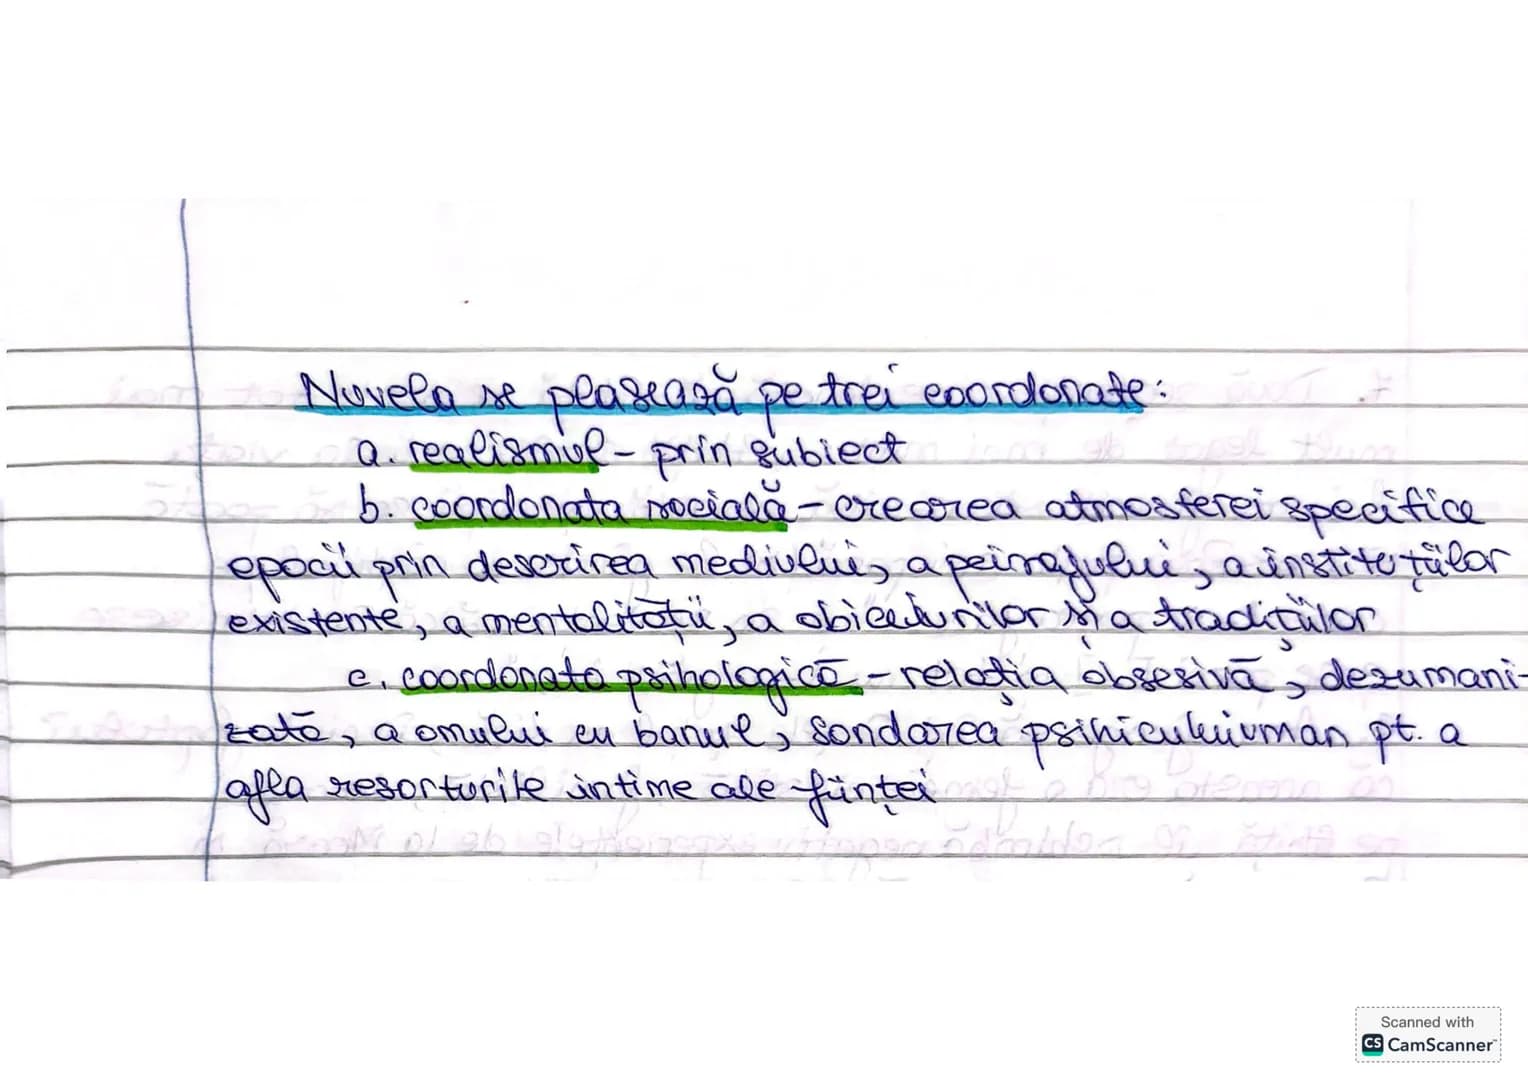 Nuvela se plasează pe trei coordonate:
a. realismul - prin subiect
b. coordonata socială - crearea atmosferei specifice
epocii prin descrirea mediului, a peisajului, a instituțiilor
existente, a mentalității, a obiceiurilor și a tradițiilor
c. coordonata psihologică - relația obsesivă, dezumani-
zată, a omului cu banul, sondarea psihicului uman pt. a
afla resorturile intime ale ființei
Scanned with
CS CamScanner